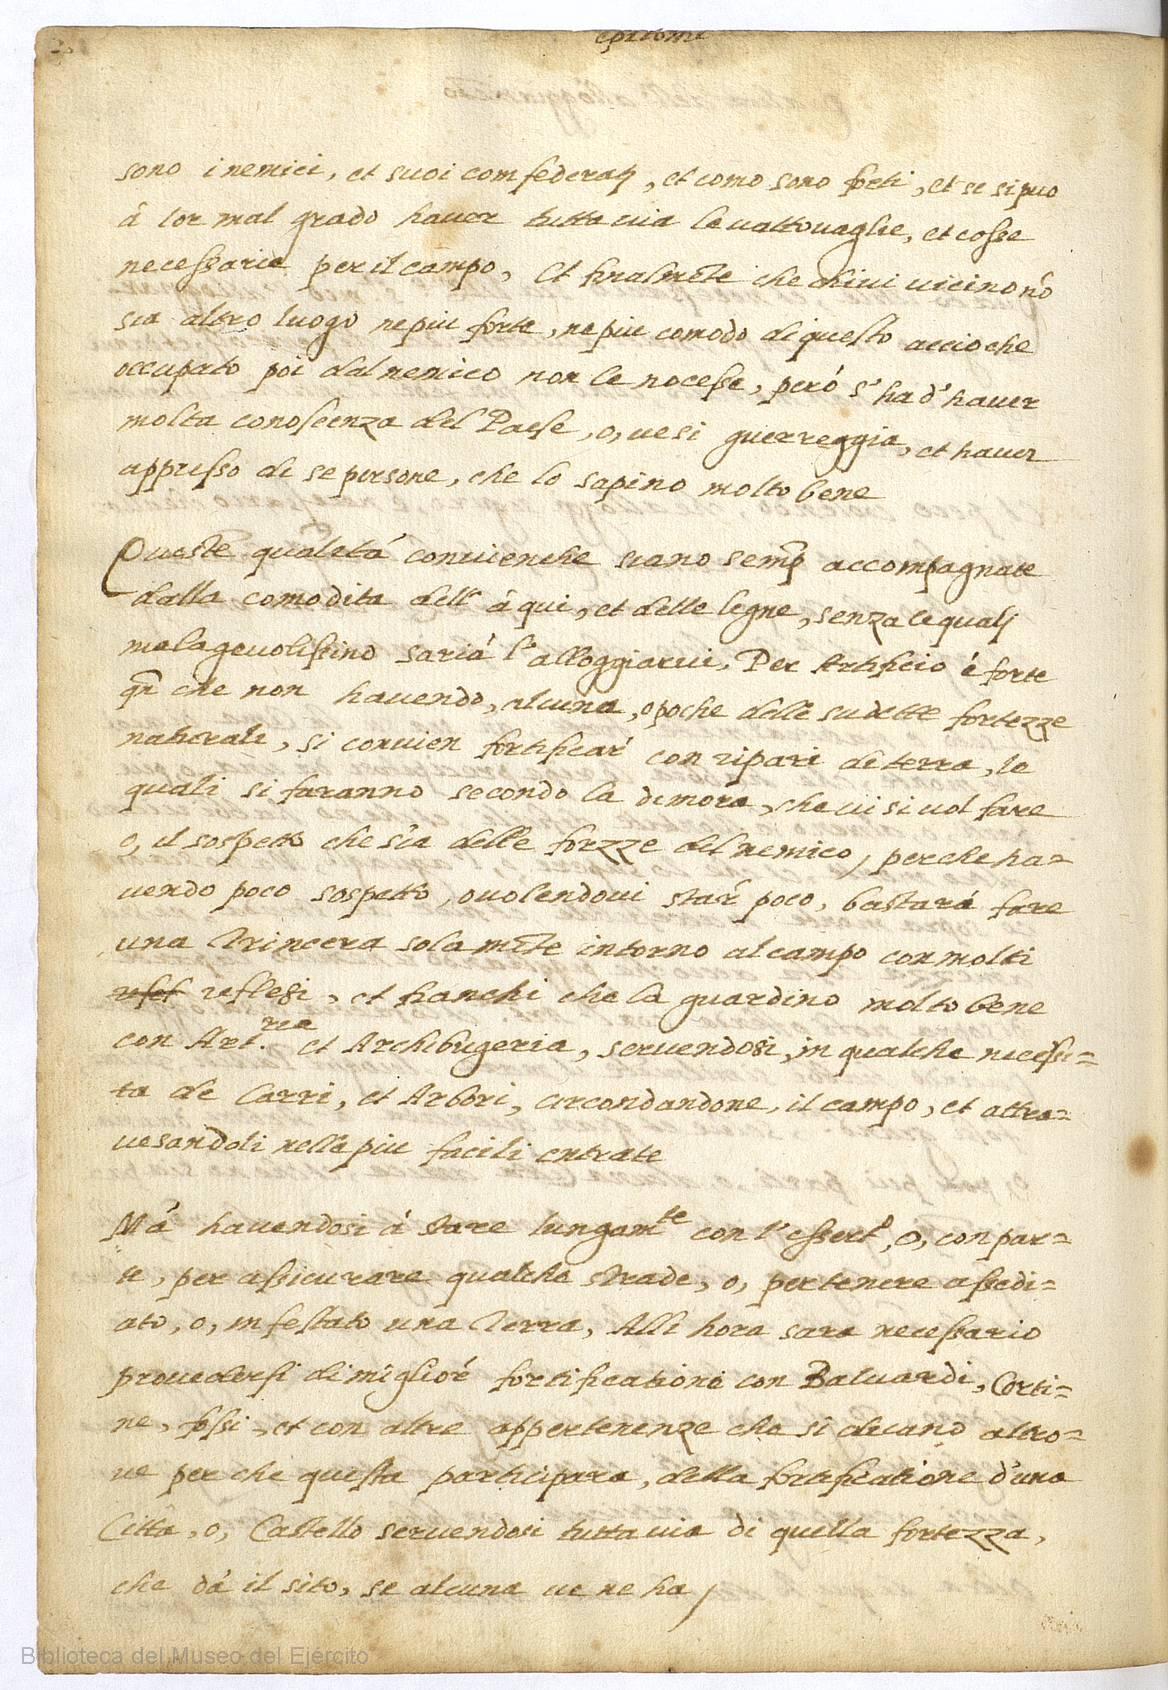 sono i nemici, et suoi comfederatj, et como sono forti, et se si puo
â lor mal grado hauer tutta uia le uattouaglie, et cosse
necessarie per il campo, Et finalmẽte che chiui uicino nõ
sia altro luogo ne piu forte, ne piu comodo di questo accio che
occupato poi dal nemico non le nocesse, peró s'ha d'hauer
molta conoscenza del Paese, o, ue si guerreggia, et hauer
appresso di se persone, che lo sapino molto bene
Queste qualitá conuienche siano semp accompagnate
dalla comodita dell' âqui, et delle legne, senza le qualj
malageuolissimo sariá l'alloggiarui. Per Artificio é forte
qñ che non hauendo, alcuna, o poche delle sudette fortezze
naturali, si conuien fortificar con ripari de terra, le
quali si faranno secondo la dimora, che ui si uol fare
o, il sospetto che sia delle forzze del nemico, perche ha=
uendo poco sospetto, o uolendoui star poco, bastará fare
una Trincera solamẽte intorno al campo con molti
reflessi, et fianchi che la guardino molto bene
con Art.ria et Archibugeria, seruendosi, in qualche necessi=
ta de Carri, et Arbori, circondandone, il campo, et attra=
uesandoli nella piu facili entrate
Má hauendosi á stare lungam.te con l'essert.o, o, con par=
te, per assicurare qualche strade, o, per tenere assedi=
ato, o, infestato una Terra, All' hora sara necessario
prouedersi di miglior fortificationi con Baluardi, Corti=
ne, fossi, et con altre appertenenze che si dicano altro=
ue per che questa participara, della fortificatione d'una
Città, o, Castello seruendosi tutta uia di quella fortezza,
che dá il sito, se alcuna ue ne ha,
Biblioteca del Museo del Ejército